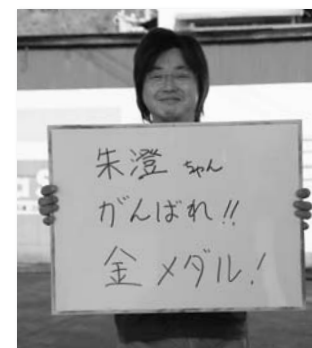 朱澄ちゃん
がんばれ!!
金メダル!